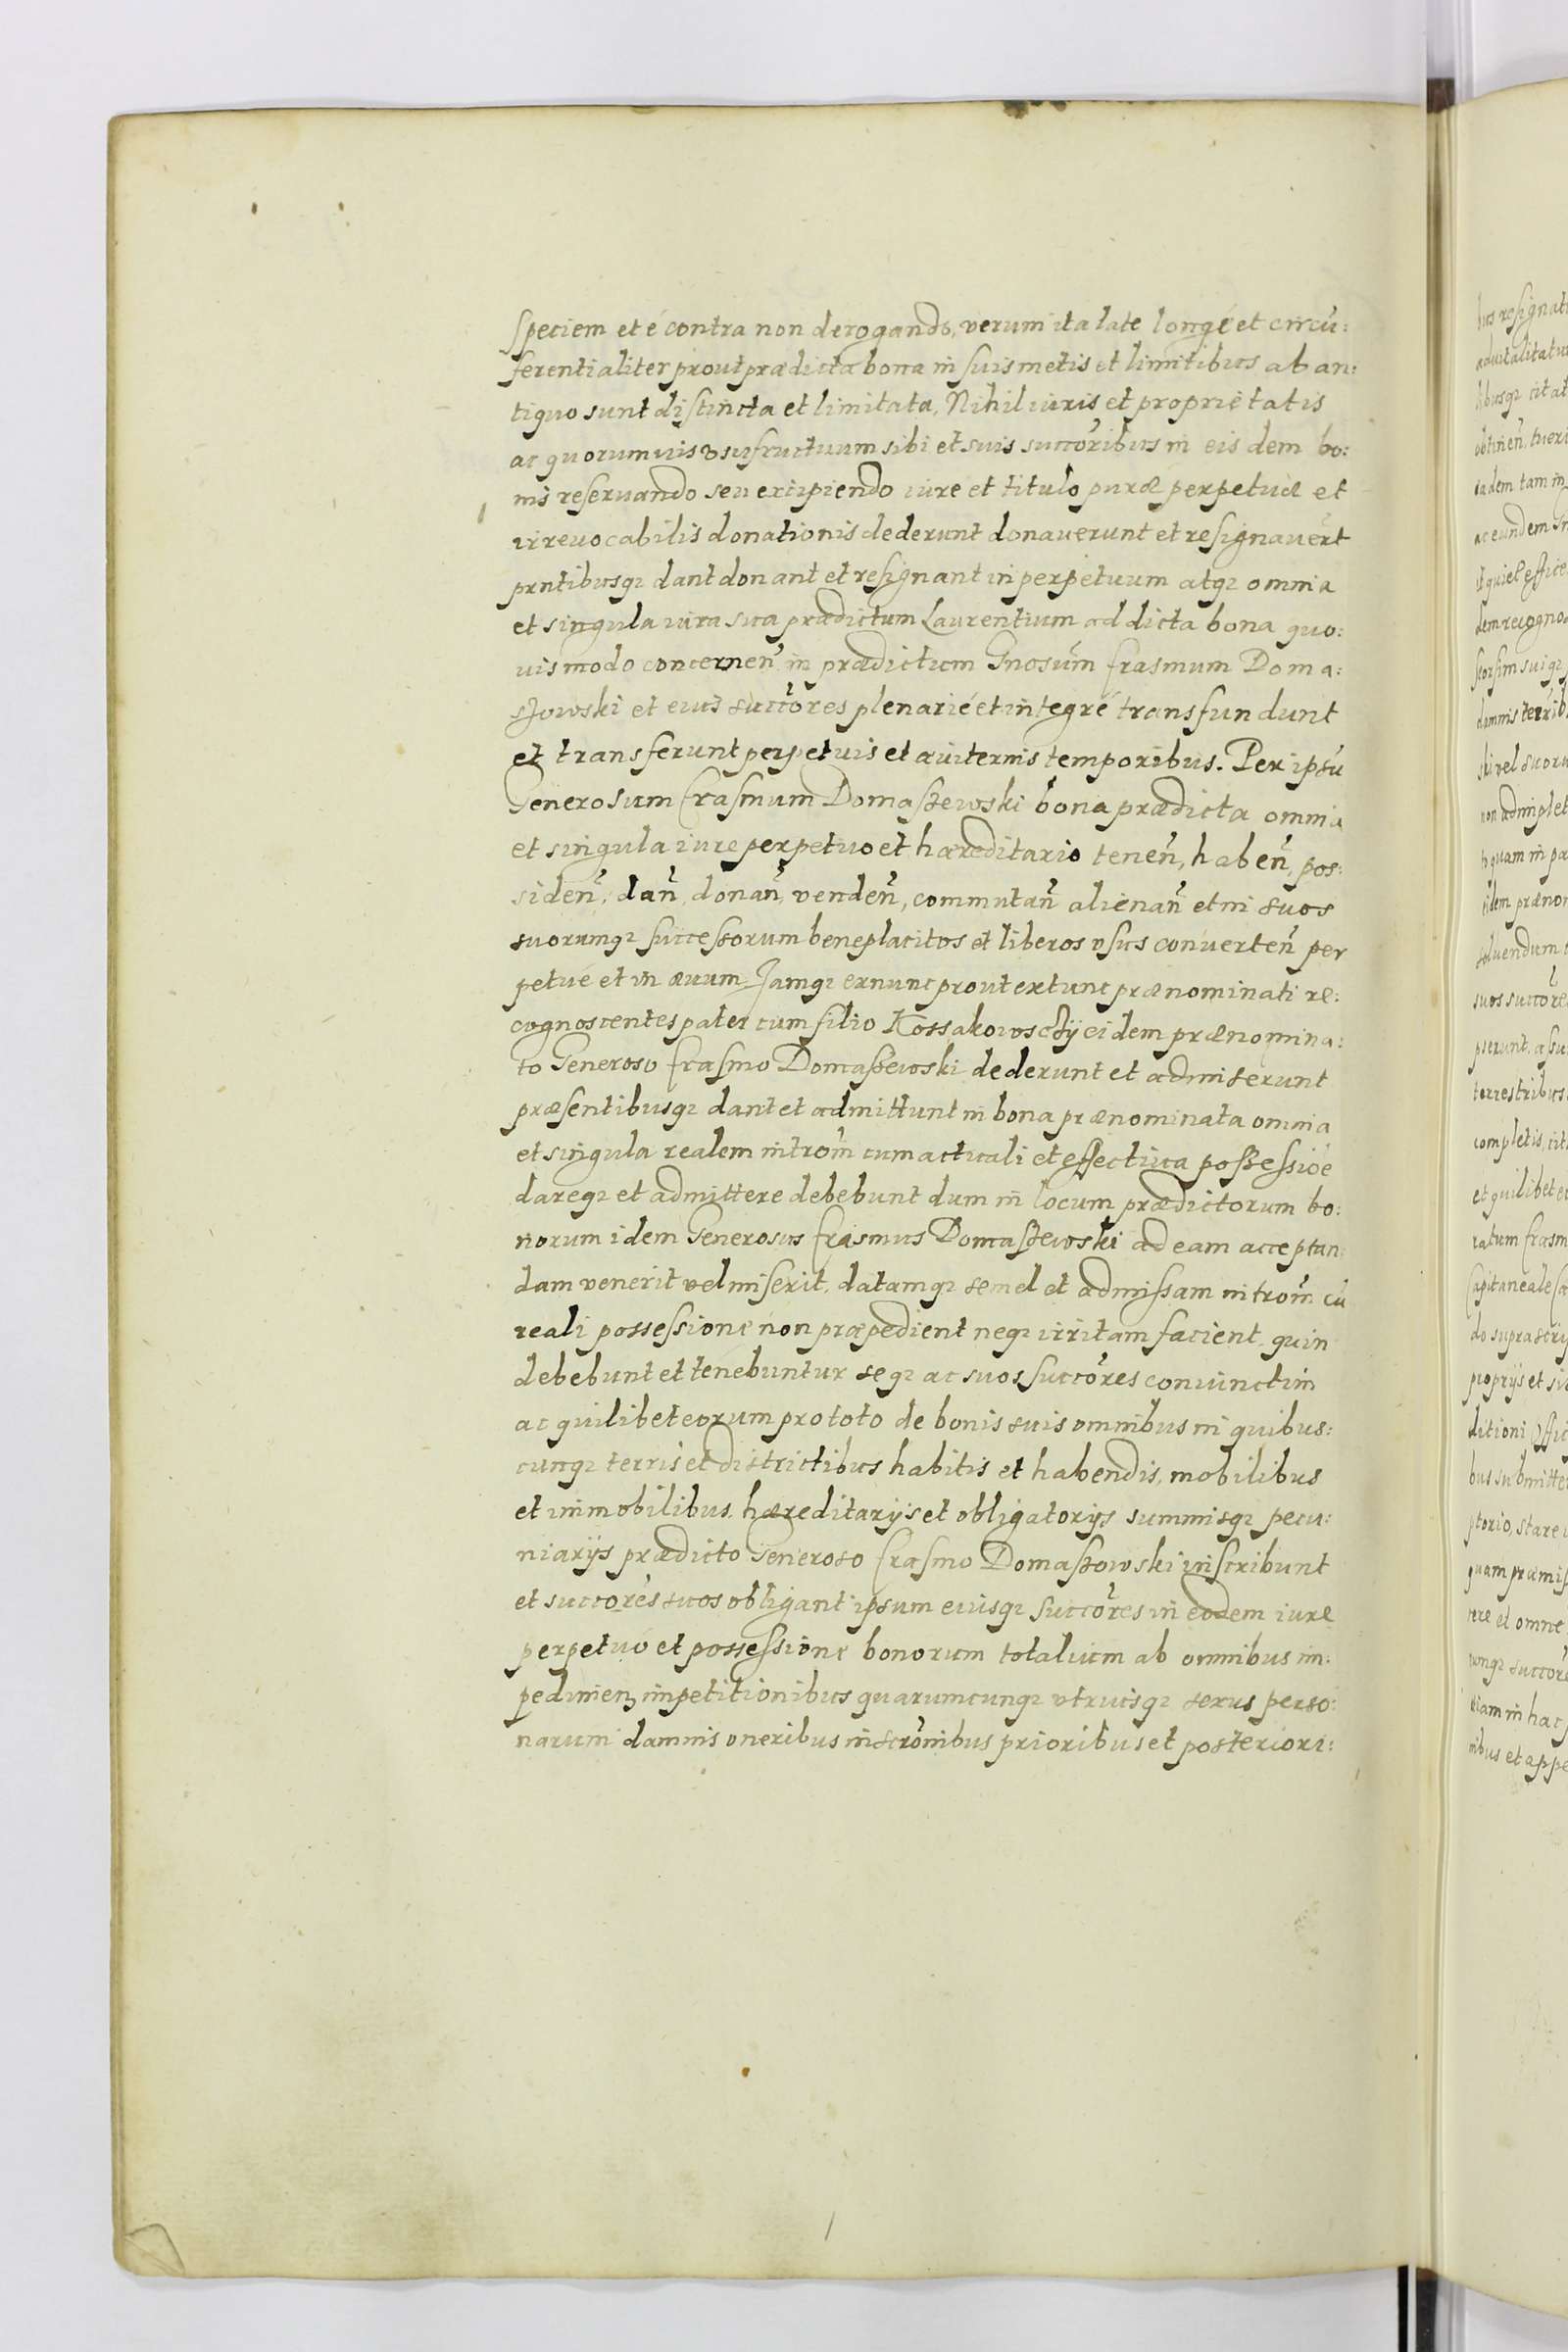 speciem et é contra non derogando, verum ita late longé et circū:
ferentialiter prout prædicta bona in suis metis et limitibus ab an:
tiquo sunt distincta et limitata, Nihil iuris et proprietatis
ac quorumuis vsufructuum sibi et suis succõribus in eis dem bo:
nis reseruando seu excipiendo iure et titulo puræ perpetuæ et
irreuocabilis donationis dederunt donauerunt et resignauert̃
prntibusq₃ dant donant et resignant in perpetuum atq₃ omnia
et singula iura sua prædictum Laurentium ad dicta bona quo:
uis modo concernen̄ in prædictum Gnosum̃ Erasmum Doma:
szowski et eius succõres plenarié et integré transfundunt
et transferunt perpetuis et æuiternis temporibus. Per ipsū
Generosum Erasmum Domaszewski bona prædicta omnia
et singula iure perpetuo et hæreditario tenen̄, haben̄, pos:
siden̄, dan̄, donan̄, venden̄, commutan̄ alienan̄ et in suos
suorumq₃ successorum beneplacitos et liberos vsus conuerten̄ per
petué et in æuum. Jamq₃ exnunc prout extunc prænominati re:
cognoscentes pater cum filio Kossakowsczÿ eidem prænomina:
to Generoso Erasmo Domaszewski dederunt et admiserunt
præsentibusq₃ dant et admittunt in bona prænominata omnia
et singula realem introm̃ cum actuali et effectiua possessiōe
dareq₃ et admittere debebunt dum in locum prædictorum bo:
norum idem Generosus Erasmus Domaszewski ad eam acceptan:
dam venerit vel miserit, datamq₃ semel et admissam introm̃ cū
reali possessione non præpedient neq₃ irritam facient, quin
debebunt et tenebuntur seq₃ ac suos succõres conuinctim
ac quilibet eorum pro toto de bonis suis omnibus in quibus:
cunq₃ terris et districtibus habitis et habendis, mobilibus
et immobilibus, hæreditarÿs et obligatorÿs summisq₃ pecu:
niarÿs prædicto Generoso Erasmo Domaszowski inscribunt
et succores suos obligant ipsum eiusq₃ succõres in eodem iure
perpetuo et possessione bonorum totalium ab omnibus im:
pedimen₃ impetitionibus quarumcunq₃ vtriusq₃ sexus perso:
narum damnis oneribus inscrōnibus prioribus et posteriori: